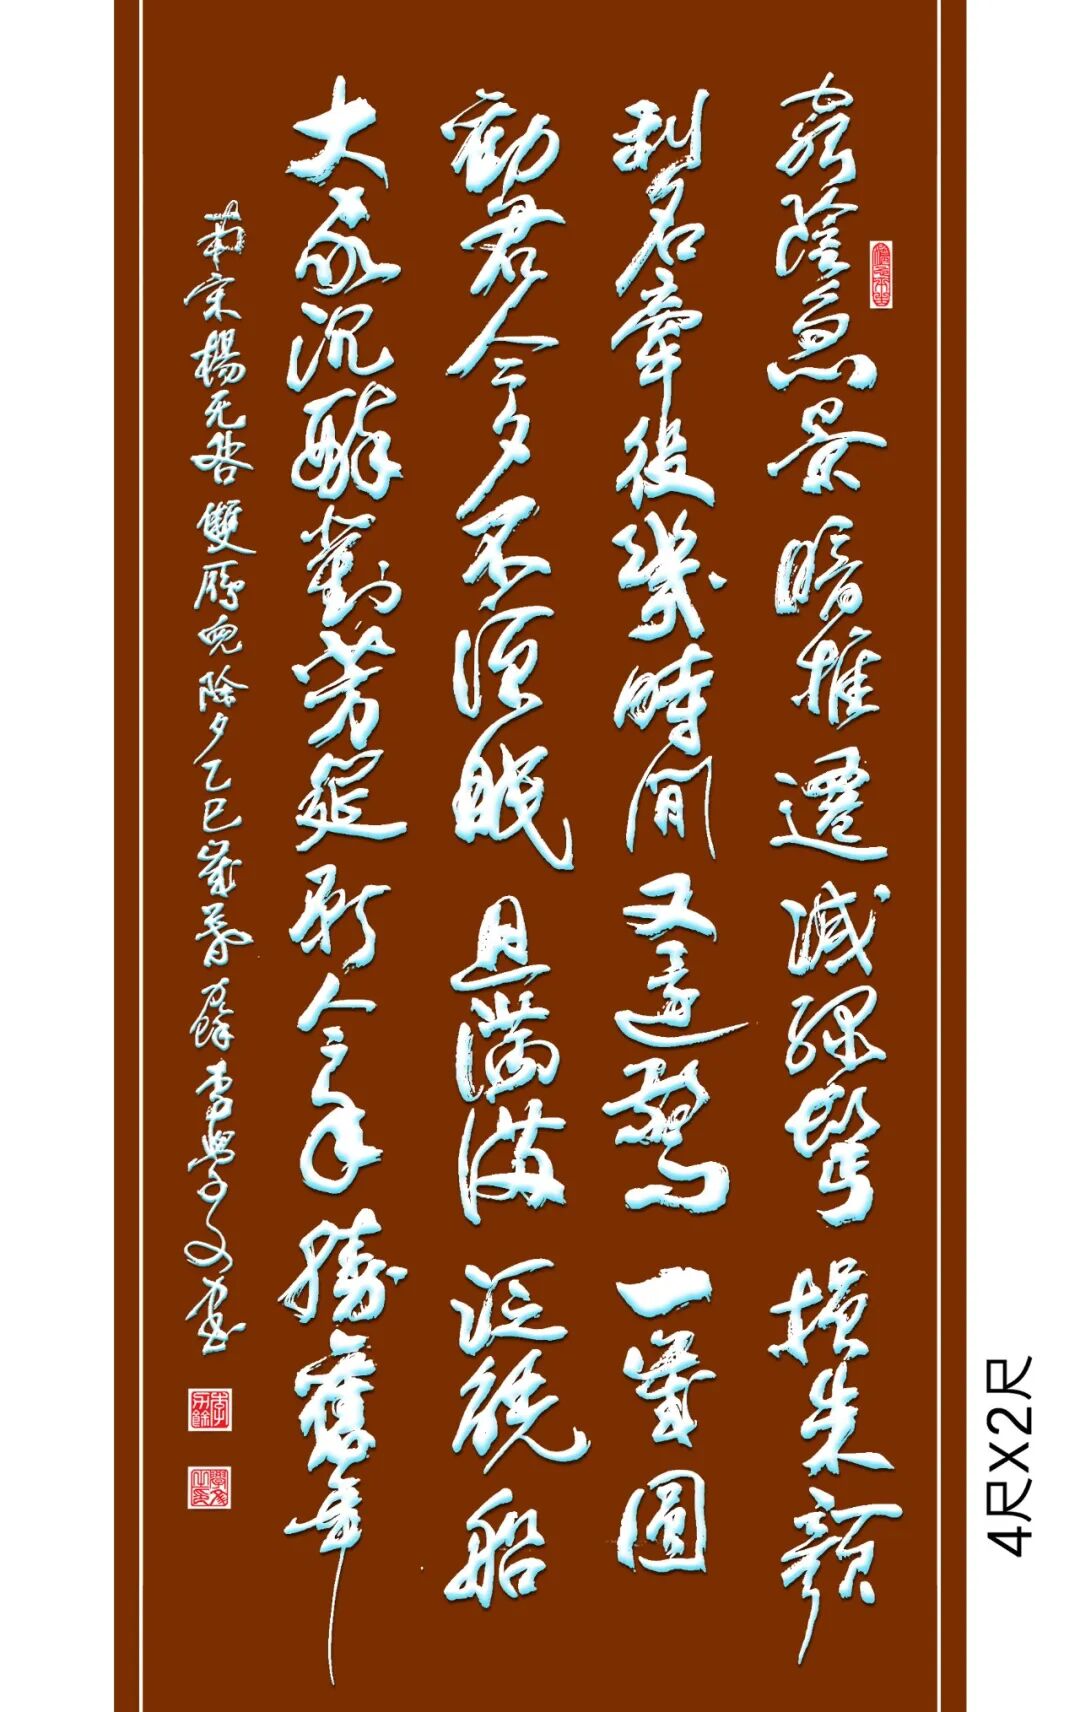 窮陰急景暗推遷減綠鬢損朱顏
利名牽役幾時閒又還驚一歲圓
勸君今夕不須眠且滿滿泛觥船
大家沉醉對芳筵願今年勝舊年
南宋楊无咎雙雁兒除夕乙巳歲暮餘李學文書
4尺x2尺